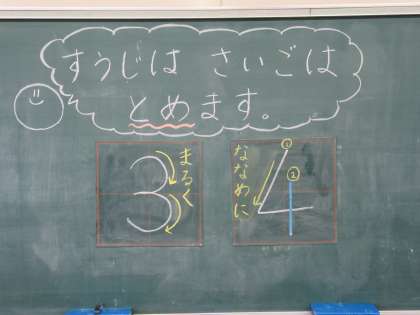 すうじは さいごは
とめます。
3
まるく
4
ななめに
①
②